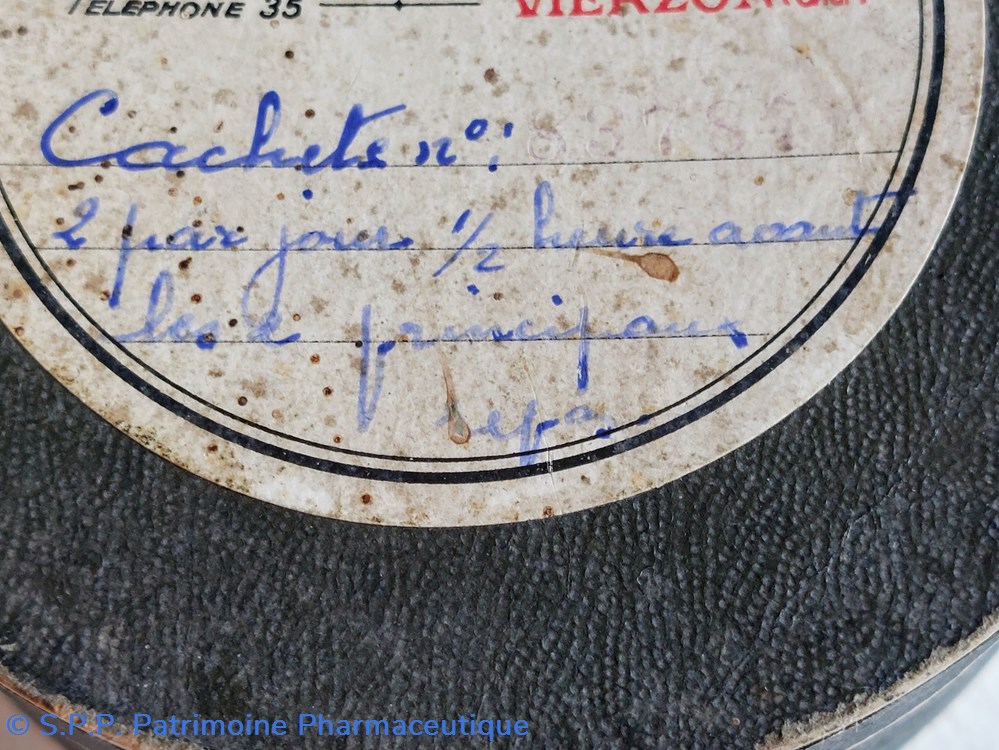 TELEPHONE 35 VIERZON
Cachets n°:
2 par jour 1/2 heure avant
les 2 principaux
repas
© S.P.P. Patrimoine Pharmaceutique